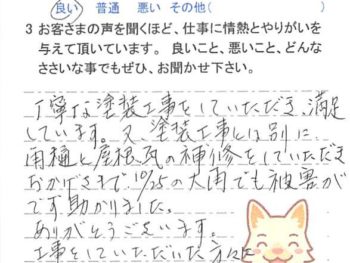 良い　普通　悪い　その他（　　　　　　　　）
3 お客さまの声を聞くほど、仕事に情熱とやりがいを
与えて頂いています。 良いこと、悪いこと、どんな
ささいな事でもぜひ、お聞かせ下さい。
丁寧な塗装工事をしていただき、満足
しています。又、塗装工事とは別に、
雨樋と屋根瓦の補修をしていただき
おかげさまで 10/25の大雨でも被害が
です助かりました。
ありがとうございます。
工事をしていただいた方々に